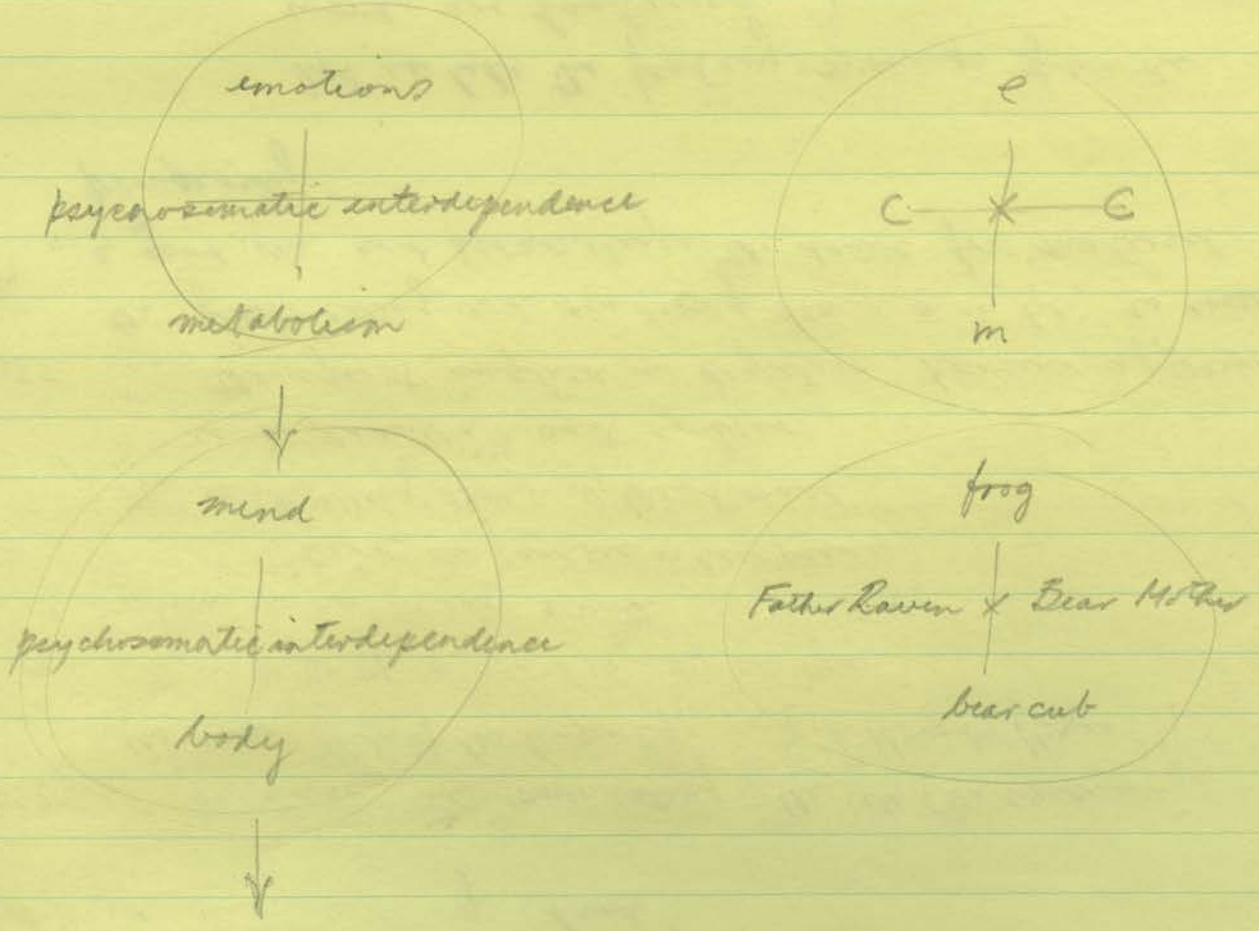 emotions
psychosomatic interdependence
metabolism
mind
psychosomatic interdependence
body
e
C x C
m
frog
Father Raven x Bear Mother
bear cub